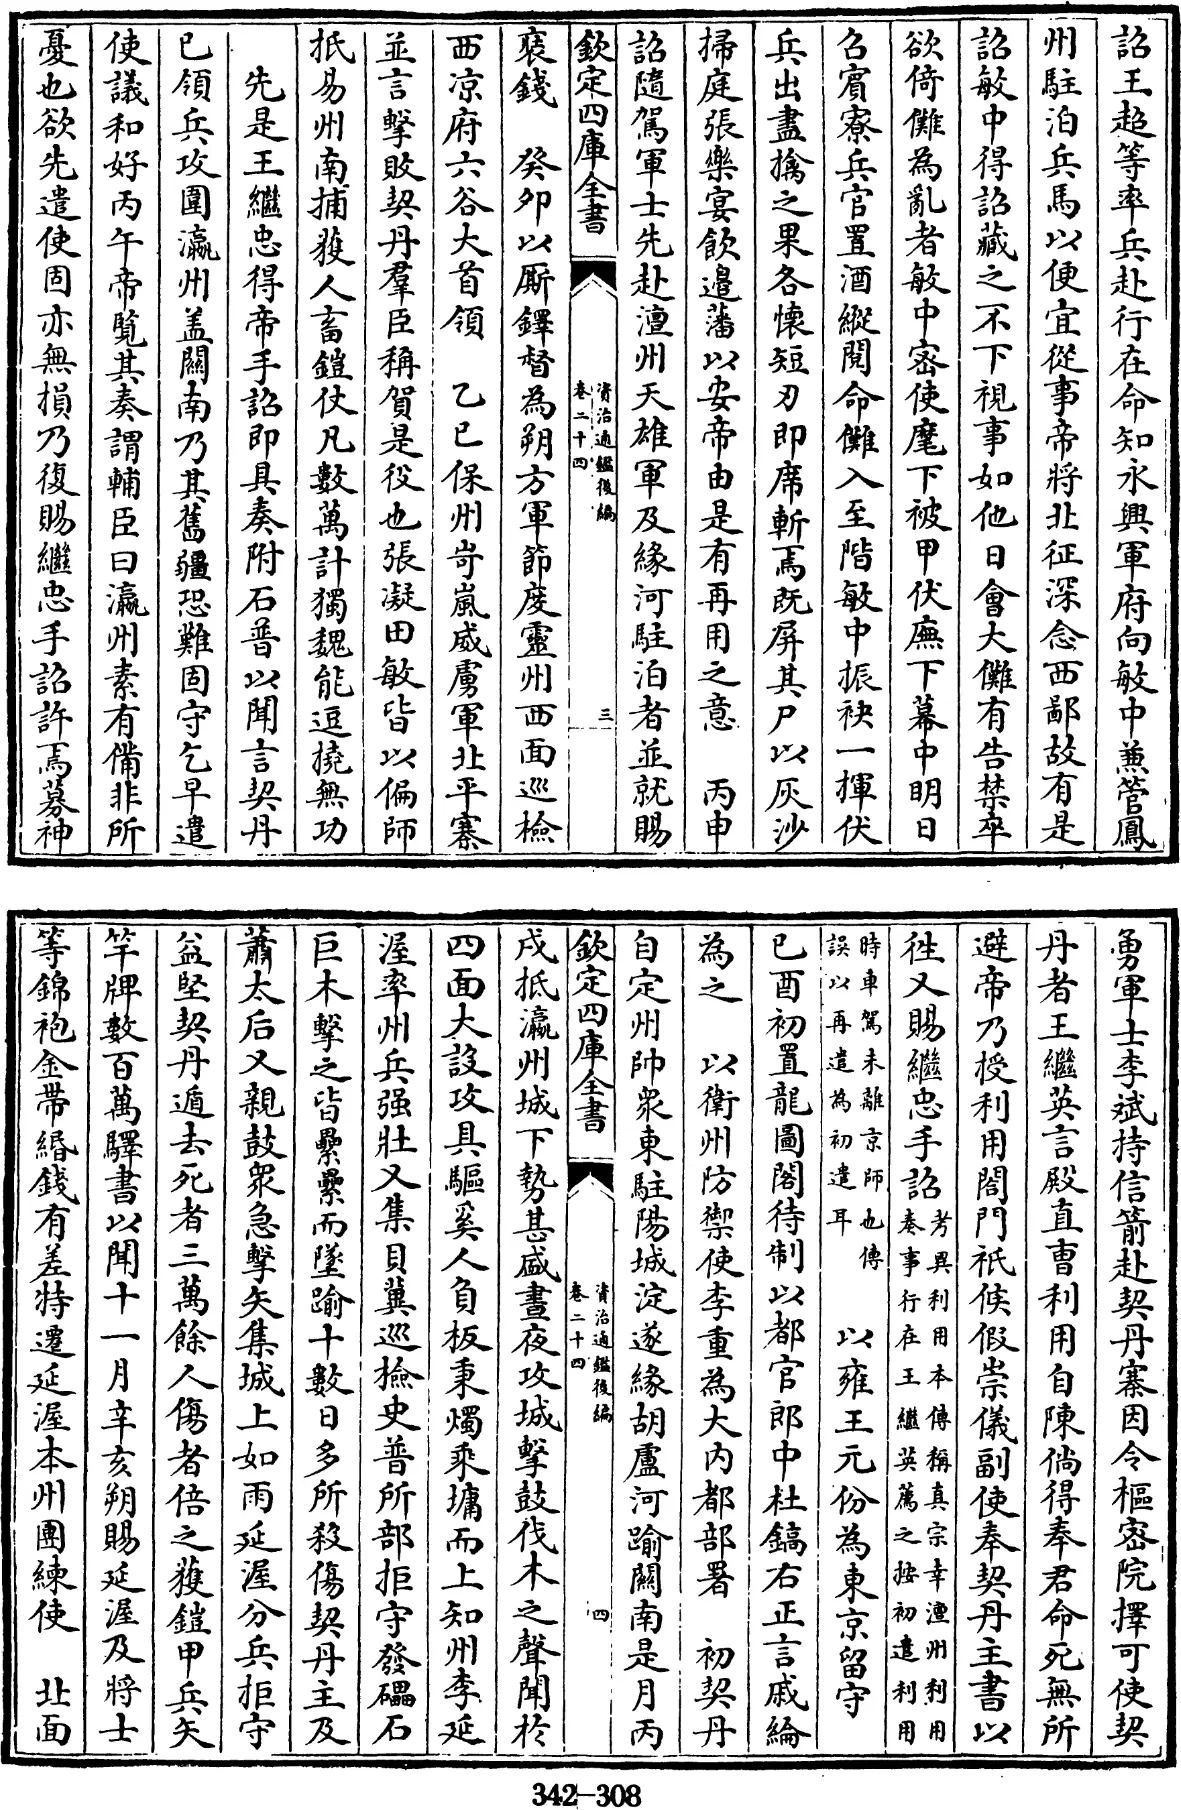 詔王超等率兵赴行在命知永興軍府向敏中兼管鳳
州駐泊兵馬以便宜從事帝將北征深念西鄙故有是
詔敏中得詔藏之不下視事如他日會大儺有告禁卒
欲倚儺為亂者敏中密使麾下被甲伏廡下幕中明日
召賓寮兵官置酒縱閱命儺入至階敏中振袂一揮伏
兵出盡擒之果各懷短刃即席斬焉既屏其尸以灰沙
掃庭張樂宴飲邊藩以安帝由是有再用之意　丙申
詔隨駕軍士先赴澶州天雄軍及緣河駐泊者並就賜
欽定四庫全書
資治通鑑後編
卷二十四
三
裘錢　癸卯以厮鐸督為朔方軍節度靈州西面巡檢
西涼府六谷大首領　乙巳保州岢嵐威虜軍北平寨
並言擊敗契丹羣臣稱賀是役也張凝田敏皆以偏師
抵易州南捕獲人畜鎧仗凡數萬計獨魏能逗撓無功
先是王繼忠得帝手詔即具奏附石普以聞言契丹
已領兵攻圍瀛州盖關南乃其舊疆恐難固守乞早遣
使議和好丙午帝覧其奏謂輔臣曰瀛州素有備非所
憂也欲先遣使固亦無損乃復賜繼忠手詔許焉募神
勇軍士李斌持信箭赴契丹寨因令樞密院擇可使契
丹者王繼英言殿直曹利用自陳倘得奉君命死無所
避帝乃授利用閤門祇候假崇儀副使奉契丹主書以
徃又賜繼忠手詔
考異利用本傳稱真宗幸澶州利用
奏事行在王繼英薦之按初遣利用
時車駕未離京師也傳
誤以再遣為初遣耳
以雍王元份為東京留守
已酉初置龍圖閣待制以都官郎中杜鎬右正言戚綸
為之　以衛州防禦使李重為大内都部署　初契丹
自定州帥衆東駐陽城淀遂緣胡盧河踰關南是月丙
欽定四庫全書
資治通鑑後編
卷二十四
四
戌抵瀛州城下勢甚盛晝夜攻城擊鼓伐木之聲聞於
四面大設攻具驅奚人負板秉燭乘墉而上知州李延
渥率州兵强壯又集貝冀巡檢史普所部拒守發礧石
巨木擊之皆纍纍而墜踰十數日多所殺傷契丹主及
蕭太后又親鼓衆急擊矢集城上如雨延渥分兵拒守
益堅契丹遁去死者三萬餘人傷者倍之獲鎧甲兵矢
竿牌數百萬驛書以聞十一月辛亥朔賜延渥及將士
等錦袍金帶緡錢有差特遷延渥本州團練使　北面
342-308